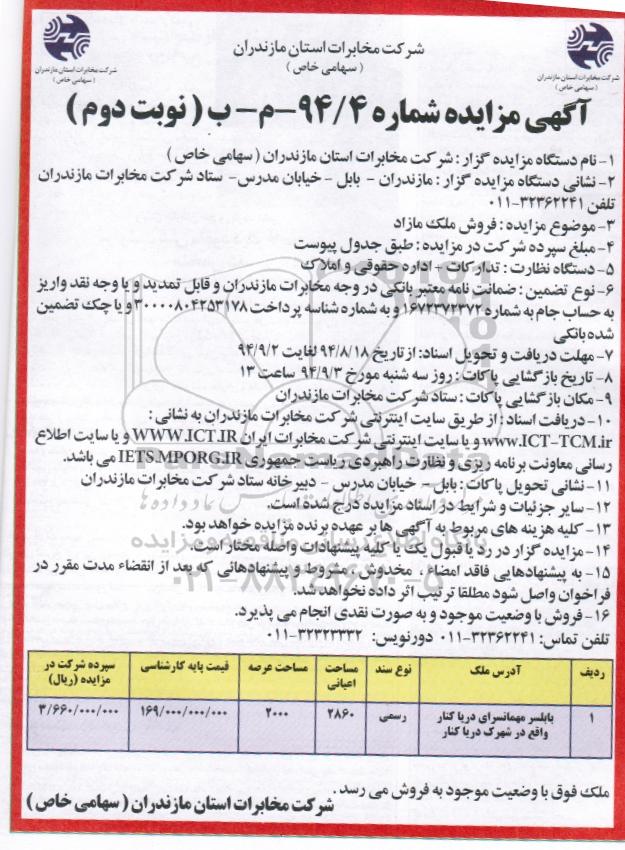 شرکت مخابرات استان مازندران
( سهامی خاص )
شرکت مخابرات استان مازندران
( سهامی خاص )
شرکت مخابرات استان مازندران
( سهامی خاص )
آگهی مزایده شماره ۹۴/۴-م- ب ( نوبت دوم )
۱- نام دستگاه مزایده گزار : شرکت مخابرات استان مازندران ( سهامی خاص )
۲- نشانی دستگاه مزایده گزار : مازندران - بابل - خیابان مدرس- ستاد شرکت مخابرات مازندران
تلفن ۳۲۳۶۲۲۴۱-۰۱۱
۳- موضوع مزایده : فروش ملک مازاد
۴- مبلغ سپرده شرکت در مزایده : طبق جدول پیوست
۵- دستگاه نظارت : تدارکات - اداره حقوقی و املاک
۶- نوع تضمین : ضمانت نامه معتبر بانکی در وجه مخابرات مازندران و قابل تمدید و یا وجه نقد واریز
به حساب جام به شماره ۱۶۷۲۳۷۲۳۷۲ و به شماره شناسه پرداخت ۳۰۰۰۰۸۰۴۲۵۳۱۷۸ و یا چک تضمین
شده بانکی
۷- مهلت دریافت و تحویل اسناد: از تاریخ ۹۴/۸/۱۸ لغایت ۹۴/۹/۲
۸- تاریخ بازگشایی پاکات : روز سه شنبه مورخ ۹۴/۹/۳ ساعت ۱۳
۹- مکان بازگشایی پاکات : ستاد شرکت مخابرات مازندران
۱۰- دریافت اسناد : از طریق سایت اینترنتی شرکت مخابرات مازندران به نشانی :
www.ICT-TCM.ir و یا سایت اینترنتی شرکت مخابرات ایران WWW.ICT.IR و یا سایت اطلاع
رسانی معاونت برنامه ریزی و نظارت راهبردی ریاست جمهوری IETS.MPORG.IR می باشد.
۱۱- نشانی تحویل پاکات : بابل - خیابان مدرس - دبیرخانه ستاد شرکت مخابرات مازندران
۱۲- سایر جزئیات و شرایط در اسناد مزایده درج شده است.
۱۳- کلیه هزینه های مربوط به آگهی ها بر عهده برنده مزایده خواهد بود.
۱۴- مزایده گزار در رد یا قبول یک یا کلیه پیشنهادات واصله مختار است.
۱۵- به پیشنهادهایی فاقد امضاء ، مخدوش ، مشروط و پیشنهادهائی که بعد از انقضاء مدت مقرر در
فراخوان واصل شود مطلقا ترتیب اثر داده نخواهد شد.
۱۶- فروش با وضعیت موجود و به صورت نقدی انجام می پذیرد.
تلفن تماس: ۳۲۳۶۲۲۴۱-۰۱۱ دورنویس: ۳۲۳۲۳۳۳۲-۰۱۱
ردیف آدرس ملک نوع سند مساحت اعیانی مساحت عرصه قیمت پایه کارشناسی سپرده شرکت در مزایده (ریال)
۱ بابلسر مهمانسرای دریا کنار واقع در شهرک دریا کنار رسمی ۲۸۶۰ ۲۰۰۰ ۱۶۹/۰۰۰/۰۰۰/۰۰۰ ۳/۶۶۰/۰۰۰/۰۰۰
ملک فوق با وضعیت موجود به فروش می رسد .
شرکت مخابرات استان مازندران ( سهامی خاص )
ParsNamadData
پایگاه اطلاع رسانی مناقصه و مزایده
۰۲۱-۸۸۳۴۹۶۷۰-۵